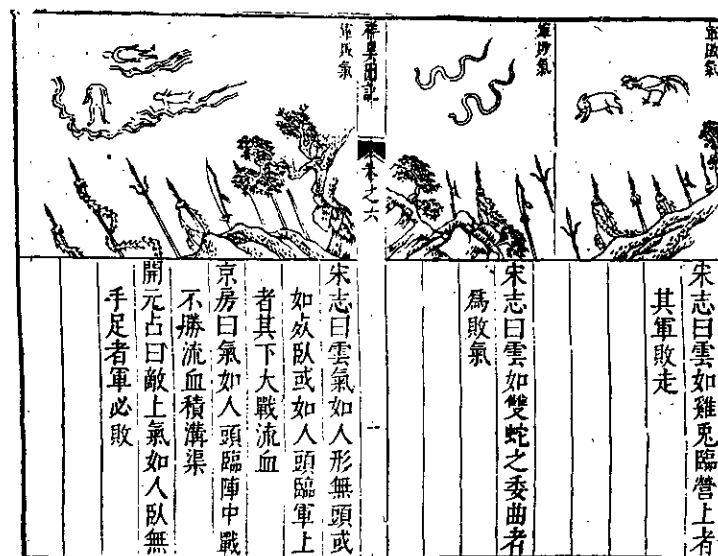 軍敗氣
宋志曰雲如雞兎臨營上者
其軍敗走
軍敗氣
宋志曰雲如雙蛇之委曲者
爲敗氣
祥異圖
之六
軍敗氣
宋志曰雲氣如人形無頭或
如死臥或如人頭臨軍上
者其下大戰流血
京房曰氣如人頭臨陣中戰
不勝流血積溝渠
開元占曰敵上氣如人臥無
手足者軍必敗